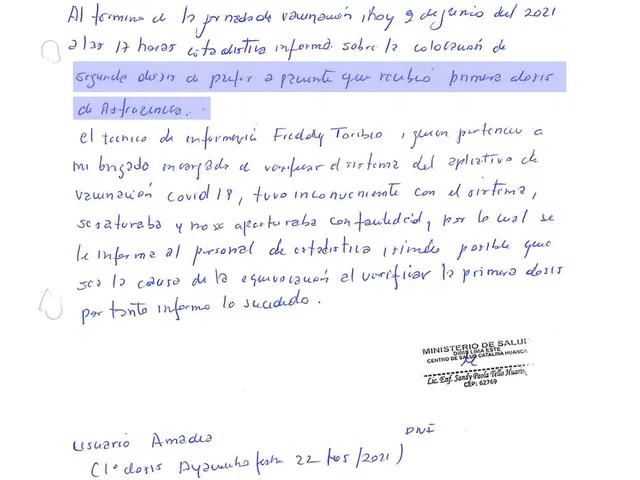 Al termino de la jornada de vacunación, hoy 9 de junio del 2021
a las 17 horas estadistica informa sobre la colocación de
segunda dosis de pfizer a paciente que recibió primera dosis
de Astrazeneca.
El tecnico de información Freddy Toribio, quien pertenece a
mi brigada encargado de verificar el sistema del aplicativo de
vacunación covid 19, tuvo inconveniente con el sistema,
se saturaba y no se aperturaba con facilidad, por lo cual se
le informa al personal de estadistica, siendo posible que
sea la causa de la equivocación al verificar la primera dosis
por tanto informo lo sucedido.
MINISTERIO DE SALUD
DIRIS LIMA ESTE
CENTRO DE SALUD CATALINA HUANCA
Lic. Enf. Sandy Paola Tello Huarin
CEP: 62769
Usuario Amadea DNI
(1° dosis Ayacucho fecha 22/05/2021)